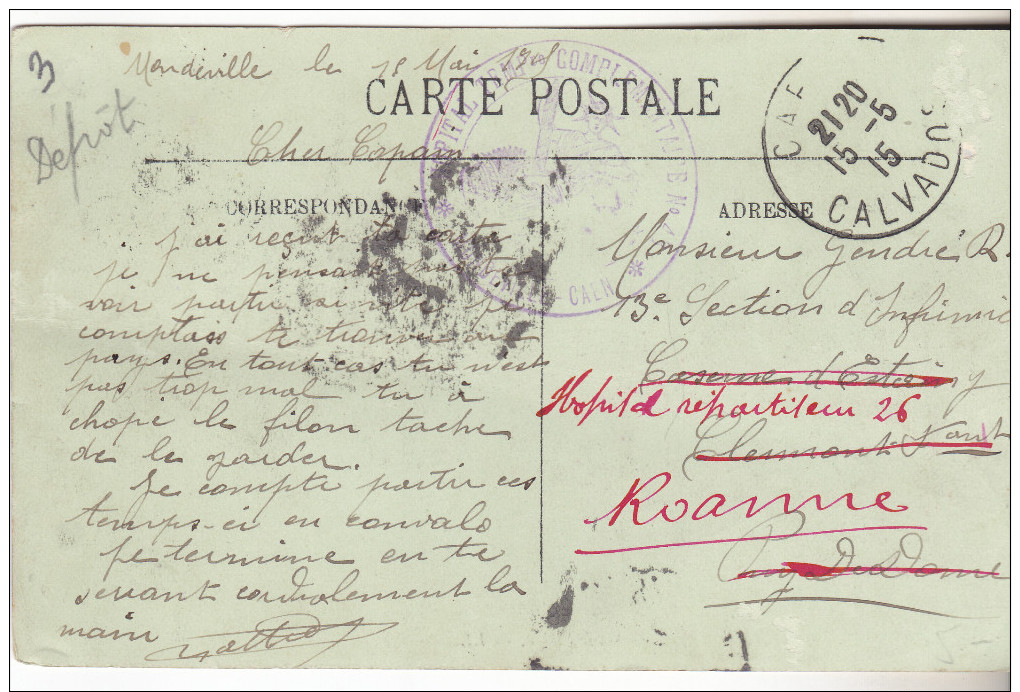 3
Dépôt
Mondeville le 15 Mai 1915
CARTE POSTALE
HOPITAL TEMP COMPLEMENTAIRE No 4
* CAEN *
CAE
21 20
15 -5
15
CALVADOS
Cher Copain
CORRESPONDANCE
ADRESSE
j'ai reçut ta carte
je ne pensais pas te
voir partir si vite je
comptass te trouver au
pays. En tout cas tu n'est
pas trop mal tu à
chopé le filon tache
de le garder.
Je compte partir ces
temps-ci en convalo
je termine en te
serrant cordialement la
main
Monsieur Gendre R.
13e Section d'Infirmie
Caserne d'Estaing
Hopital répartiteur 26
Clermont-Ferrant
Roanne
Puy De Dome